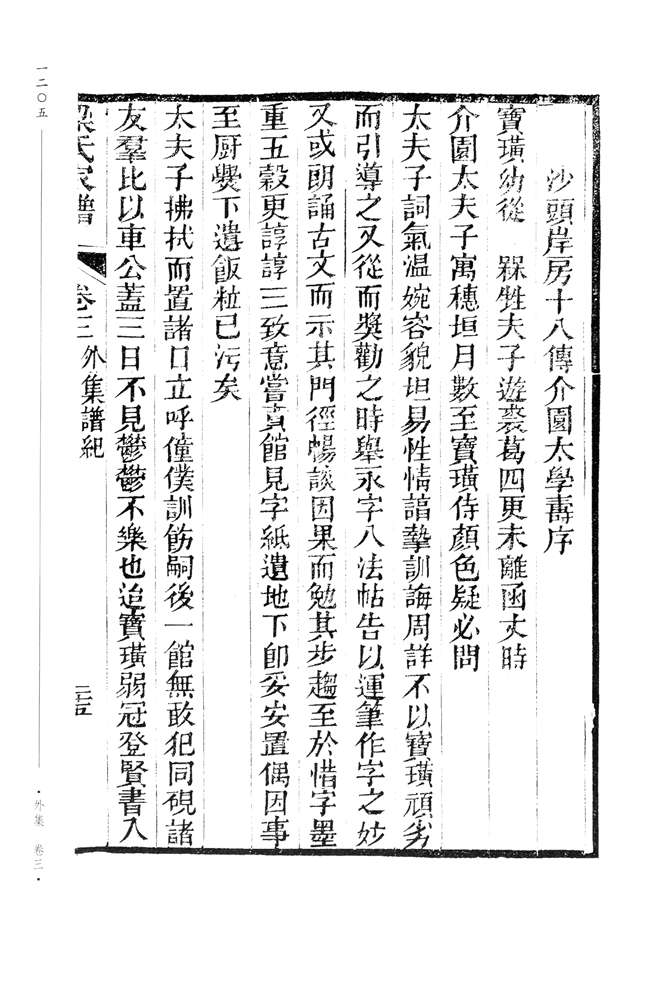 沙頭岸房十八傳介園太學壽序
寶璜幼從 槑甡夫子遊裘葛四更未離函丈時
介園太夫子寓穗垣月數至寶璜侍顏色疑必問
太夫子詞氣溫婉容貌坦易性情誼摯訓誨周詳不以寶璜頑劣
而引導之又從而獎勸之時舉永字八法帖告以運筆作字之妙
又或朗誦古文而示其門徑暢談因果而勉其步趨至於惜字墨
重五穀更諄諄三致意嘗責館見字紙遺地下卽妥安置偶因事
至厨爨下遺飯粒已污矣
太夫子拂拭而置諸口立呼僮僕訓飭嗣後一館無敢犯同硯諸
友羣比以車公蓋三日不見鬱鬱不樂也迨寶璜弱冠登賢書入
梁氏家譜 卷三 外集譜紀 三五
一二〇五
·外集 卷三·